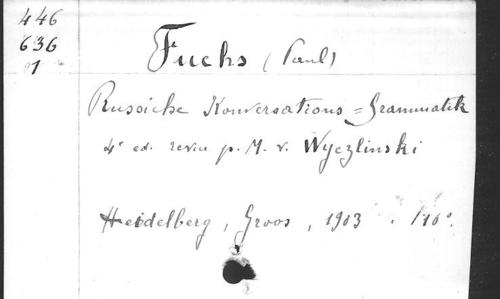 446
636
1
Fuchs (Paul)
Russiche Konversations = Grammatik
4e ed. revue p. M. v. Wyczlinski
Heidelberg, Groos, 1903.